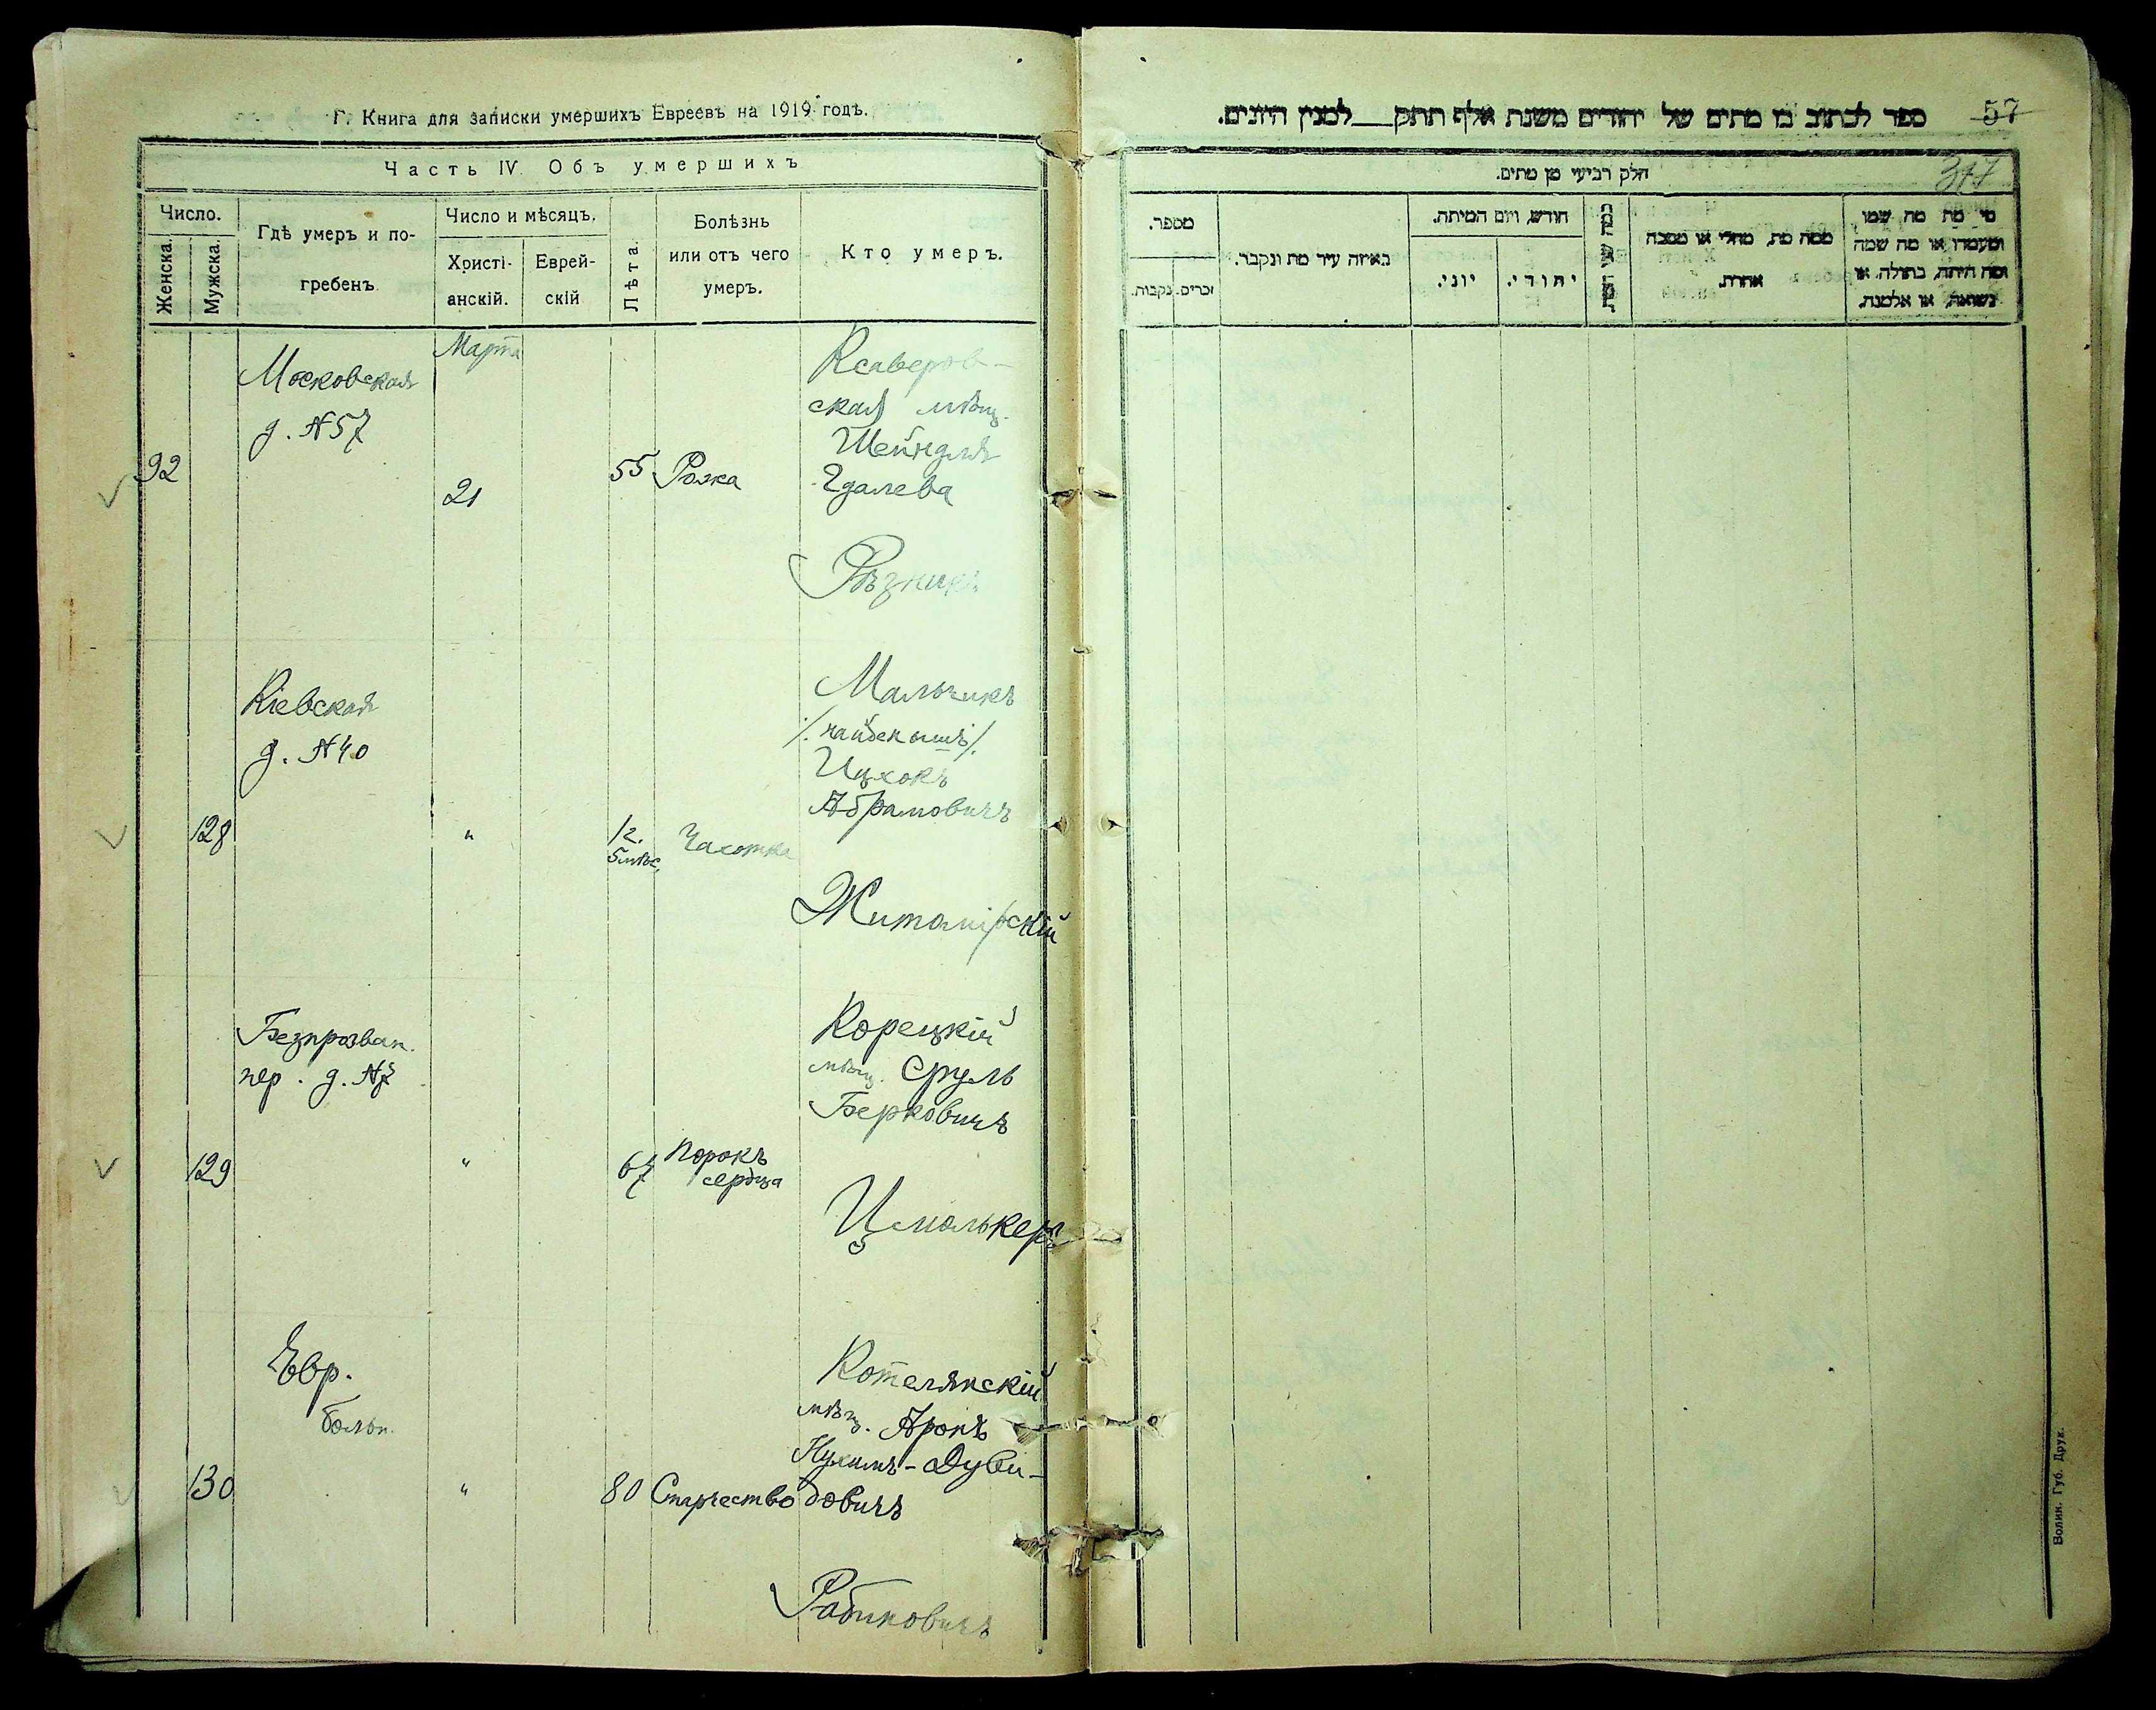 Г. Книга для записки умершихъ Евреевъ на 1919 годъ.
Часть IV. Объ умершихъ
Число.
Женска.
Мужска.
Гдѣ умеръ и по-
гребенъ
Число и мѣсяцъ.
Христі-
анскій.
Еврей-
скій
Лѣта.
Болѣзнь
или отъ чего
умеръ.
Кто умеръ.
92
Московская
д. №57
Марта
21
55
Рожа
Ксаверов-
ская мѣщ.
Шейндля
Гдалева
Рѣзникъ
128
Кіевская
д. №40
"
1 г.
5 мѣс.
Чахотка
Мальчикъ
/найденышъ/
Ицхокъ
Абрамовичъ
Житомірскій
129
Безпрозван.
пер. д. №7
"
67
Порокъ
сердца
Корецкій
мѣщ. Сруль
Берковичъ
130
Евр.
больн.
"
80
Старчество
Котелянскій
мѣщ. Аронъ
Нухимъ-Дуви-
довичъ
Рабиновичъ
ספר לכתוב בו מתים של יהודים משנת אלף תתק__ למנין היונים.
57
חלק רביעי מן מתים.
317
מספר.
נקבות.
זכרים.
באיזה עיר מת ונקבר.
חודש, ויום המיתה.
יוני.
יהודי.
ממה מת, מחלי או מסבה
אחרת.
מי מת מה שמו
ומעמדו או מה שמה
ומה היתה, בתולה, או
נשואה, או אלמנה.
Волин. Губ. Друк.